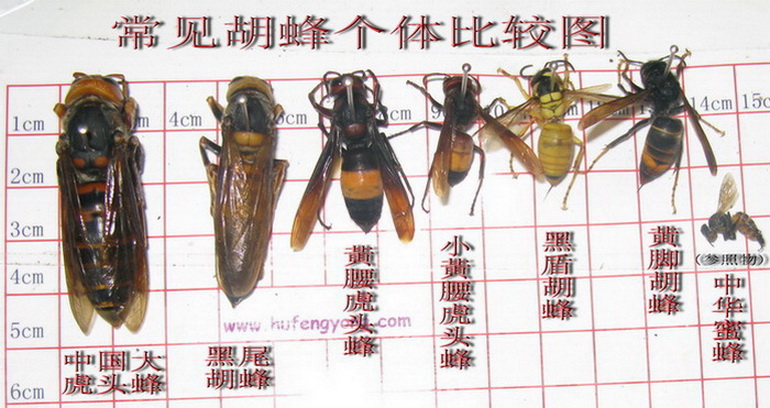 常见胡蜂个体比较图
4cm 14cm 15c
1cm
2cm
3cm
4cm
5cm
6cm
中国大
虎头蜂
黑尾
胡蜂
黄腰虎头蜂
小黄腰虎头蜂
黑盾胡蜂
黄脚胡蜂
(参照物)
中华蜜蜂